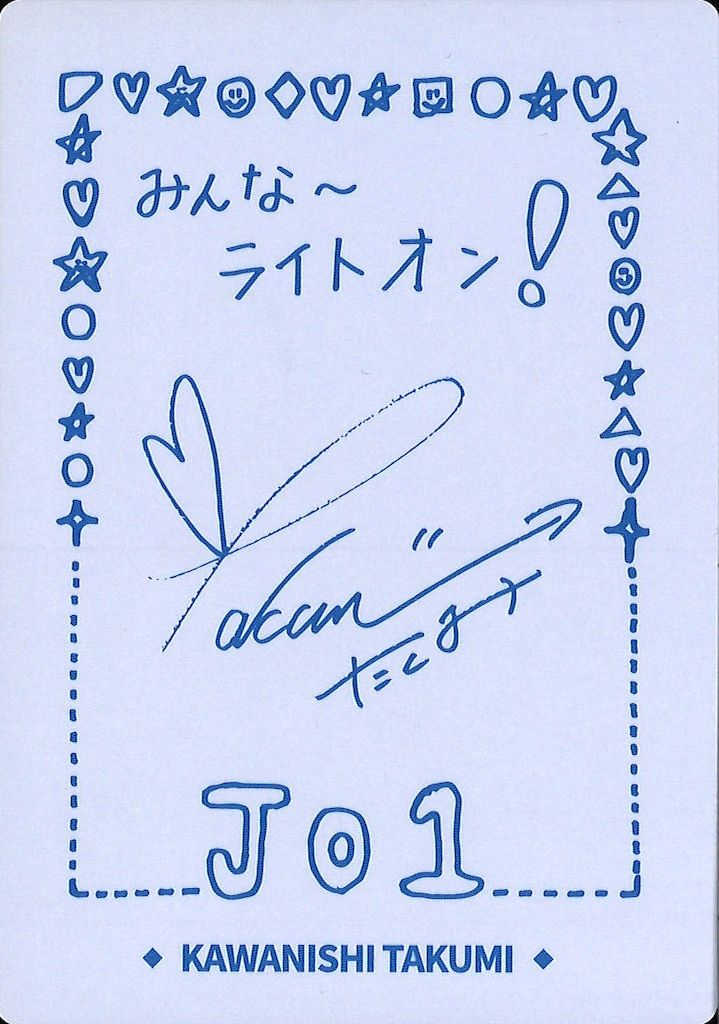 みんな～
ライトオン!
Takumi
たくみ
JO1
◆ KAWANISHI TAKUMI ◆